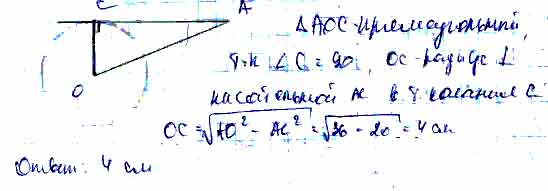 C
A
O
△AOC - прямоугольный,
т.к ∠C = 90, OC - радиус ⊥
касательной AC в т касания C.
OC = √AO² − AC² = √36 − 20 = 4 см
Ответ: 4 см